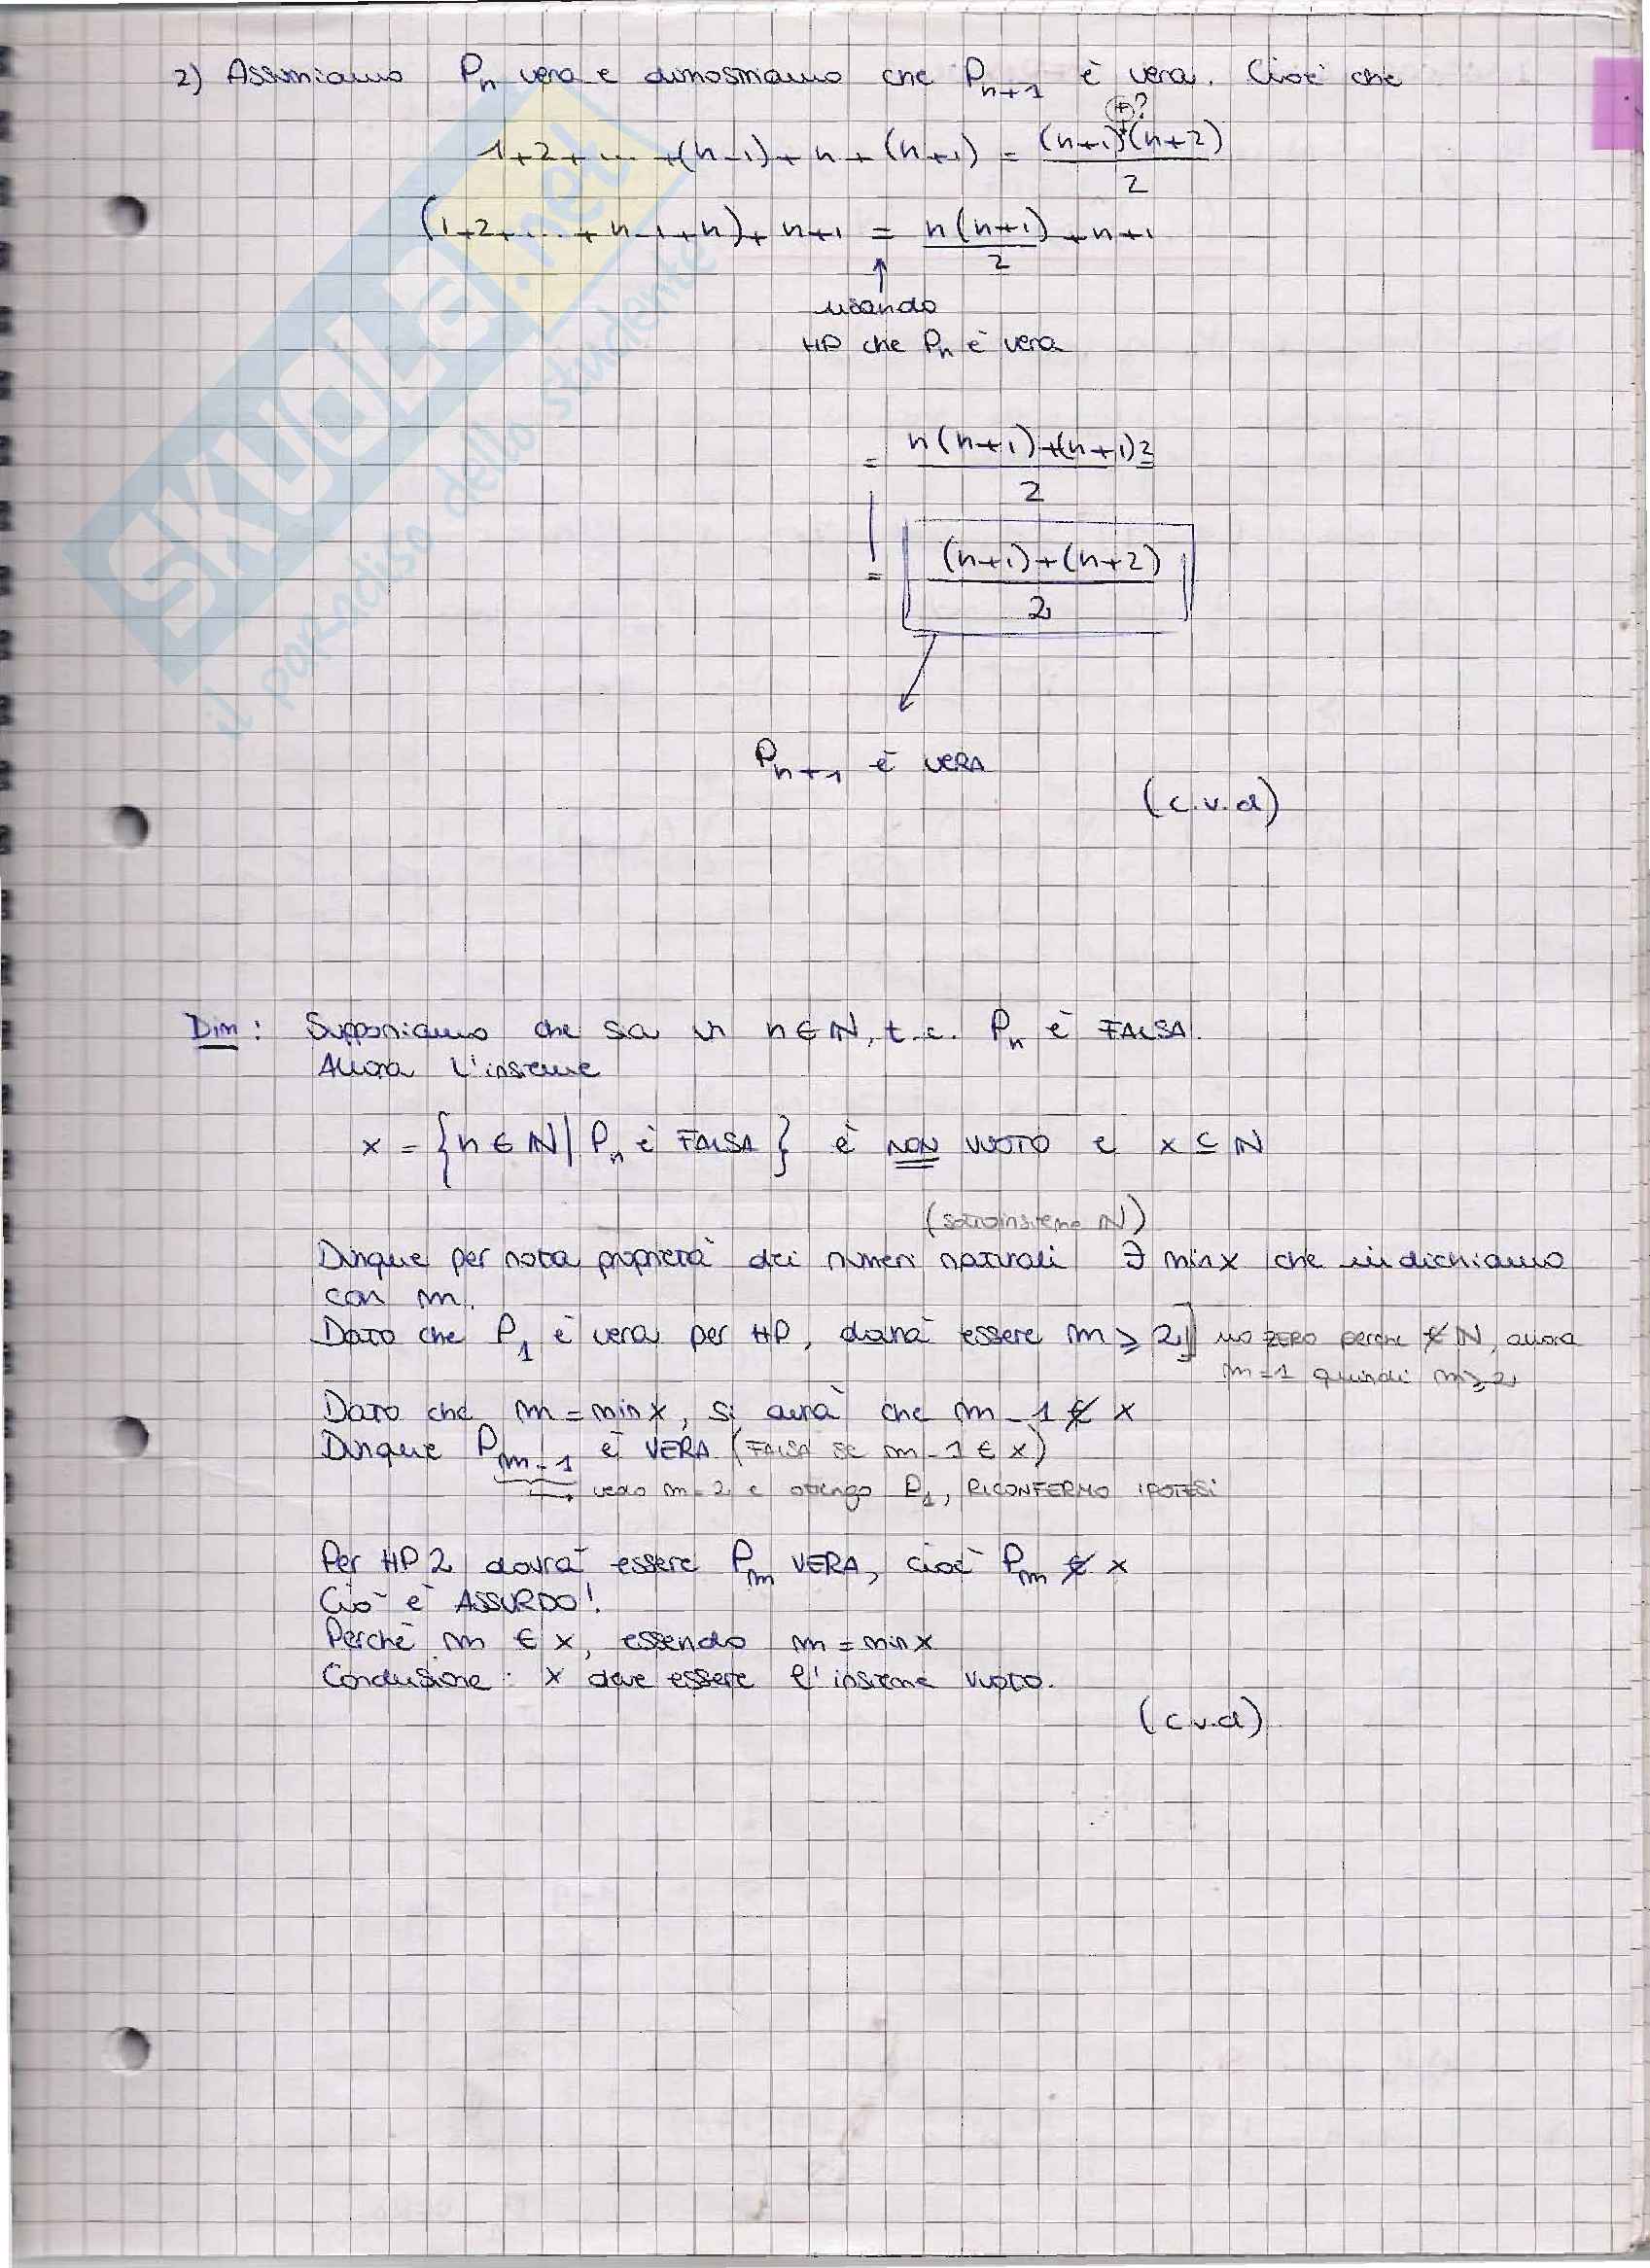 2) Assumiamo Pn vera e dimostriamo che Pn+1 è vera. Cioè che
(+)?
1+2+...+(n-1)+n+(n+1) = (n+1)+(n+2)
2
(1+2+...+n-1+n)+n+1 = n(n+1)/2 + n+1
↑
usando
HP che Pn è vera
= n(n+1)+(n+1)2
2
= (n+1)+(n+2)
2
Pn+1 è VERA
(c.v.d)
Dim: Supponiamo che sia un n∈N, t.c. Pn è FALSA.
Allora l'insieme
x = {n∈N | Pn è FALSA} è NON VUOTO e x ⊆ N
(sottoinsieme N)
Dunque per nota proprietà dei numeri naturali ∃ min x che indichiamo
con m.
Dato che P1 è vera per HP, dovrà essere m ≥ 2] no ZERO perché ∉ N, allora
m=1 quindi m≥2
Dato che m = min x, si avrà che m-1 ∉ x
Dunque Pm-1 è VERA (FALSA se m-1 ∈ x)
→ vedo m=2 e ottengo P1, RICONFERMO IPOTESI
Per HP 2 dovrà essere Pm VERA, cioè Pm ∉ x
Ciò è ASSURDO!
Perchè m ∈ x, essendo m = min x
Conclusione: x deve essere l'insieme vuoto.
(c.v.d)
SKUOLA.net
il paradiso dello studente